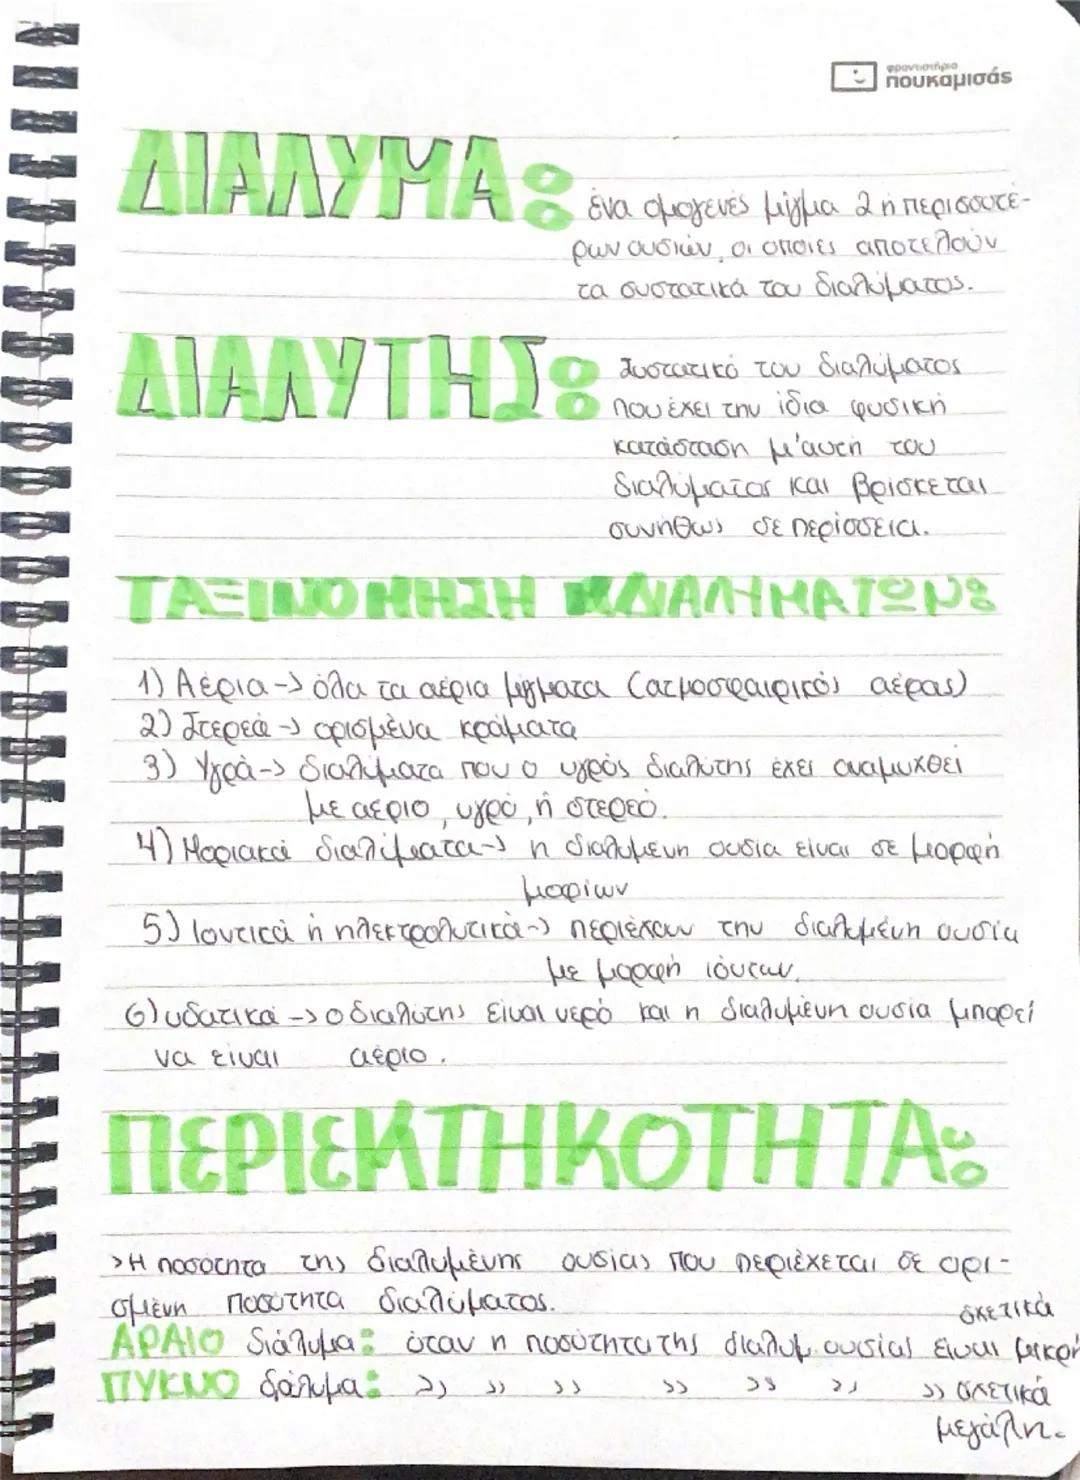 φροντιστήρια
πουκαμισάς
ΔΙΑΛΥΜΑ:
ένα ομογενές μίγμα 2 ή περισσοτέ-
ρων ουσιών, οι οποίες αποτελούν
τα συστατικά του διαλύματος.
ΔΙΑΛΥΤΗΣ:
Συστατικό του διαλύματος
που έχει την ίδια φυσική
κατάσταση μ'αυτή του
διαλύματος και βρίσκεται
συνήθως σε περίσσεια.
ΤΑΞΙΝΟΜΗΣΗ ΔΙΑΛΥΜΑΤΩΝ:
1) Αέρια -> όλα τα αέρια μίγματα (ατμοσφαιρικός αέρας)
2) Στερεά -> ορισμένα κράματα
3) Υγρά -> διαλύματα που ο υγρός διαλύτης έχει αναμιχθεί
με αέριο, υγρό, ή στερεό.
4) Μοριακά διαλύματα -> η διαλυμένη ουσία είναι σε μορφή
μορίων
5) Ιοντικά ή ηλεκτρολυτικά -> περιέχουν την διαλυμένη ουσία
με μορφή ιόντων.
6) υδατικά -> ο διαλύτης είναι νερό και η διαλυμένη ουσία μπορεί
να είναι αέριο.
ΠΕΡΙΕΚΤΗΚΟΤΗΤΑ:
>Η ποσότητα της διαλυμένης ουσίας που περιέχεται σε ορι-
σμένη ποσότητα διαλύματος.
σχετικά
ΑΡΑΙΟ διάλυμα: όταν η ποσότητα της διαλυμ. ουσίας είναι μικρή
ΠΥΚΝΟ δάλυμα: >> >> >> >> >> >> >> σχετικά
μεγάλη.